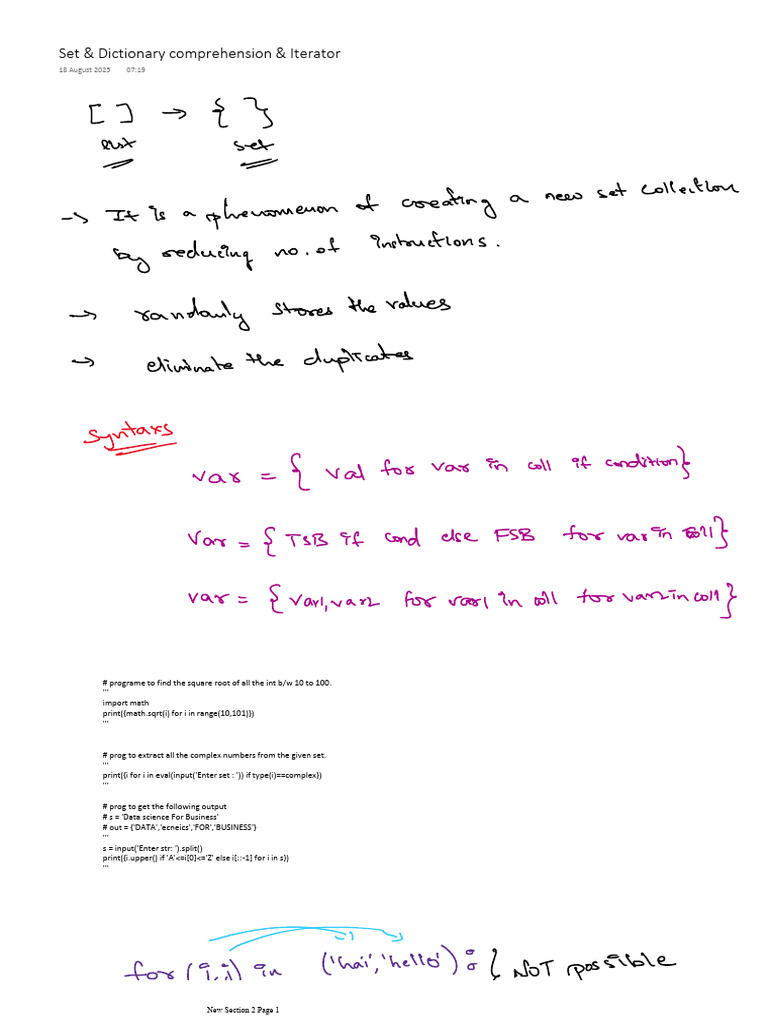 Set & Dictionary comprehension & Iterator
18 August 2025 07:19
[ ] → { }
list set
→ It is a phenomenon of creating a new set collection
by reducing no. of instructions.
→ randomly stores the values
→ eliminate the duplicates
Syntaxs
var = { val for var in coll if condition}
Var = {TSB if cond else FSB for var in coll}
var = {var1,var2 for var1 in coll for var2 in coll}
# programe to find the square root of all the int b/w 10 to 100.
'''
import math
print({math.sqrt(i) for i in range(10,101)})
'''
# prog to extract all the complex numbers from the given set.
'''
print({i for i in eval(input('Enter set : ')) if type(i)==complex})
'''
# prog to get the following output
# s = 'Data science For Business'
# out = {'DATA','ecneics','FOR','BUSINESS'}
'''
s = input('Enter str: ').split()
print({i.upper() if 'A'<=i[0]<='Z' else i[::-1] for i in s})
'''
for (i,j) in ('hai','hello') : { NOT possible
New Section 2 Page 1